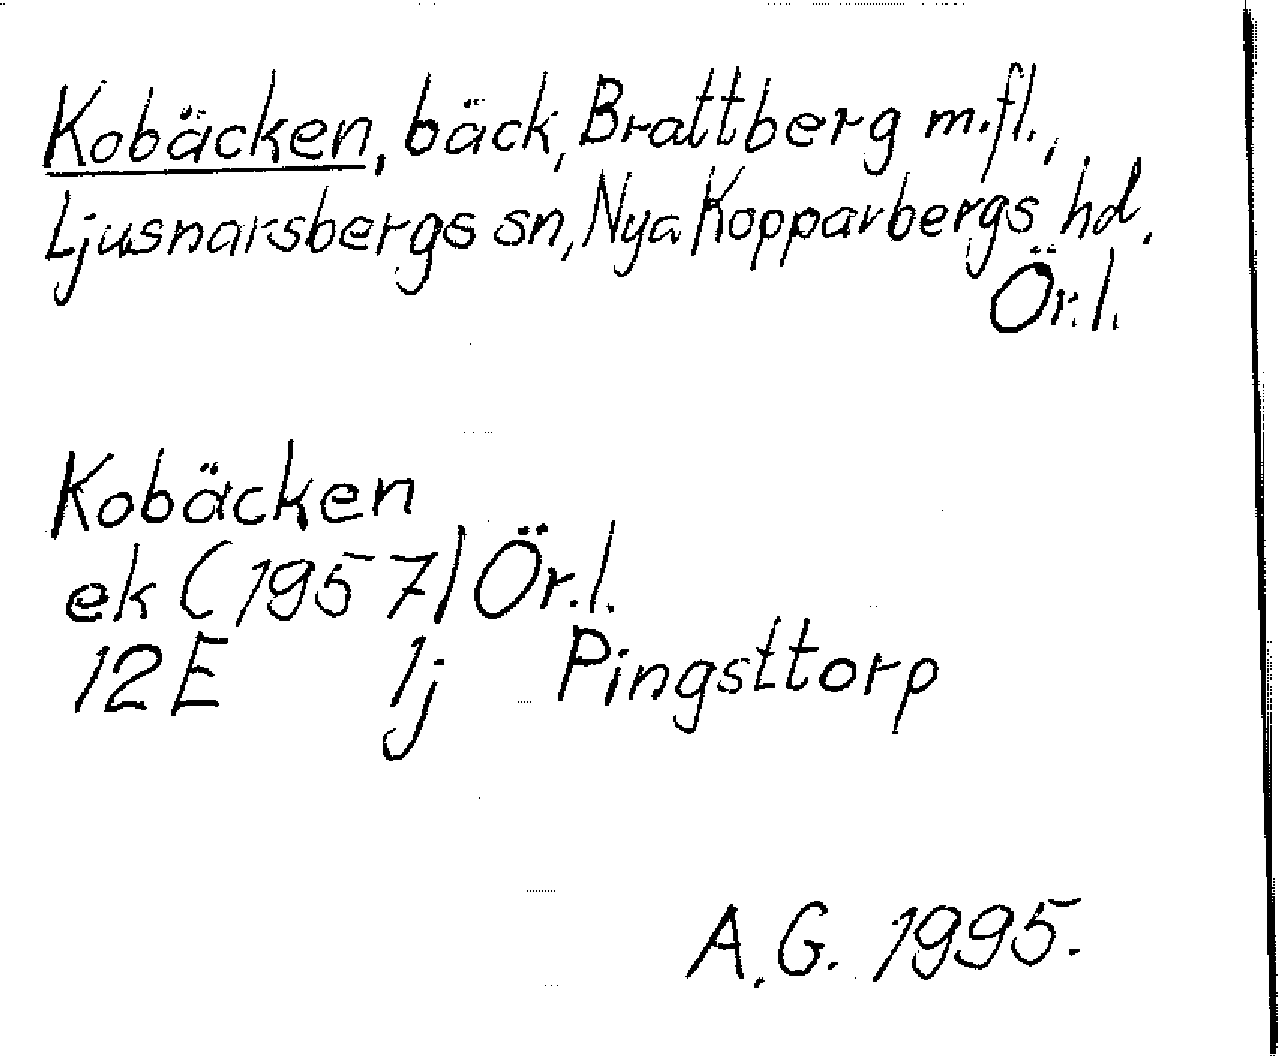 Kobäcken, bäck, Brattberg m.fl.,
Ljusnarsbergs sn, Nya Kopparbergs hd.
Ör.l.
Kobäcken
ek (1957) Ör.l.
12E 1j Pingsttorp
A.G. 1995.